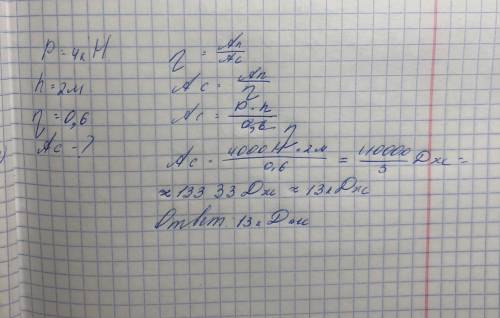 P = 4кН
h = 2м
η = 0,6
Ac - ?
η = Aп/Ac
Ac = Aп/η
Ac = P·h/η
Ac = 4000Н·2м/0,6 = 40000/3 Дж ≈
≈ 13333 Дж ≈ 13кДж
Ответ: 13кДж